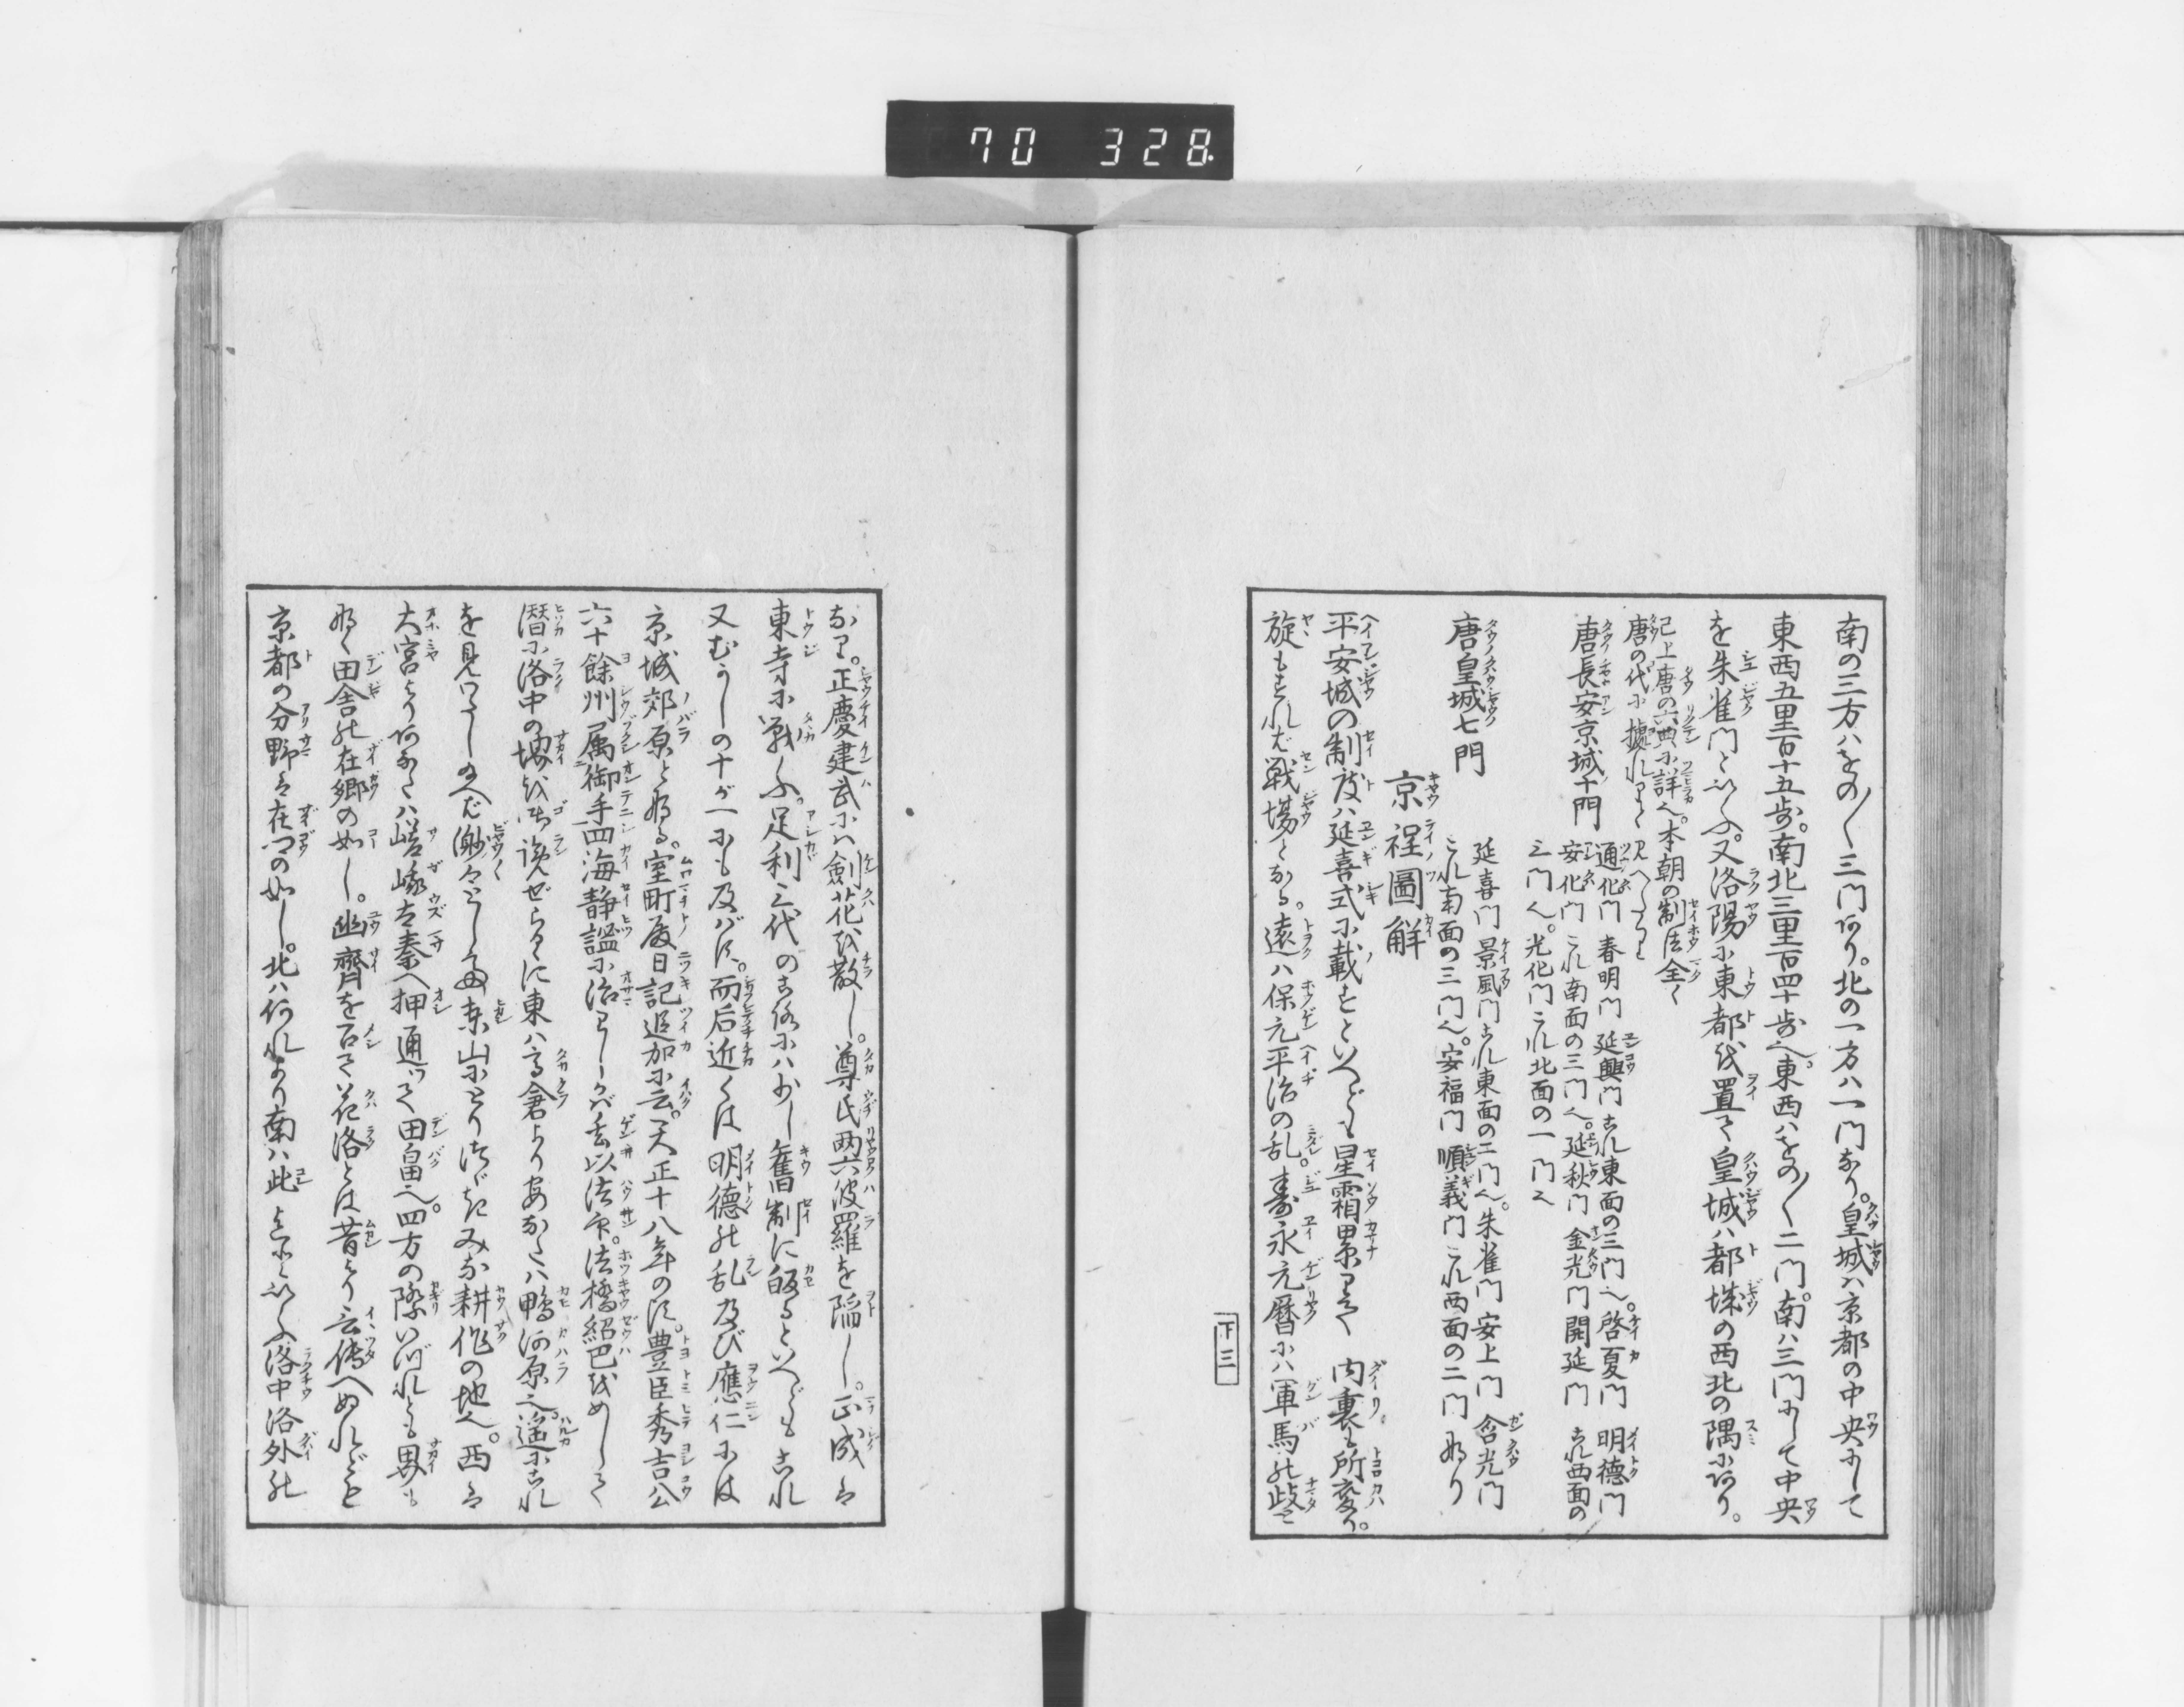 70 328
南の三方ハをの〳〵三門あり。北の一方ハ一門なり。皇城ハ京都の中央にして
東西五里百十五歩。南北三里百四十歩也。東西ハをの〳〵二門。南ハ三門にして中央
を朱雀門といふ。又洛陽に東都を置て皇城ハ都城の西北の隅にあり。
已上唐の六典に詳也。本朝の制法全く
唐の代に據れりと見へたり
唐長安京城十門
通化門 春明門 延興門 これ東面の三門也。啓夏門 明徳門
安化門 これ南面の三門也。延秋門 金光門 開延門 これ西面の
三門也。光化門これ北面の一門也
唐皇城七門
延喜門 景風門これ東面の二門也。朱雀門 安上門 含光門
これ南面の三門也。安福門 順義門これ西面の二門なり
京程圖解
平安城の制度ハ延喜式に載すといへども星霜累りて 内裏も所変り。
旋もすれば戦場となる。遠ハ保元平治の乱。壽永元暦にハ軍馬の岐
下三
なり。正慶建武にハ劍花を散し。尊氏両六波羅を陥し。正成は
東寺に戦ふ。足利三代のころにハ少し舊制に皈るといへどもこれ
又むかしの十が一にも及ばず。而后近くは明徳の乱及び應仁には
京城郊原となる。室町殿日記追加に云。天正十八年の比。豊臣秀吉公
六十餘州属御手四海静謐に治りしかば玄以法印。法橋紹巴をめして
潜に洛中の堺を御覧ぜらるに東ハ高倉より あなたハ鴨河原也。遥にこれ
を見わたし給へば渺々として東山にとりつゞきみな耕作の地也。西は
大宮より あなたハ嵯峨太秦へ押通りて田畠也。四方の際いづれとも界も
なく田舎の在郷の如し。幽齊を召て花洛とは昔より云傳へぬれども
京都の分野は在郷の如し。北ハ何れより南ハ此よりといふ洛中洛外の